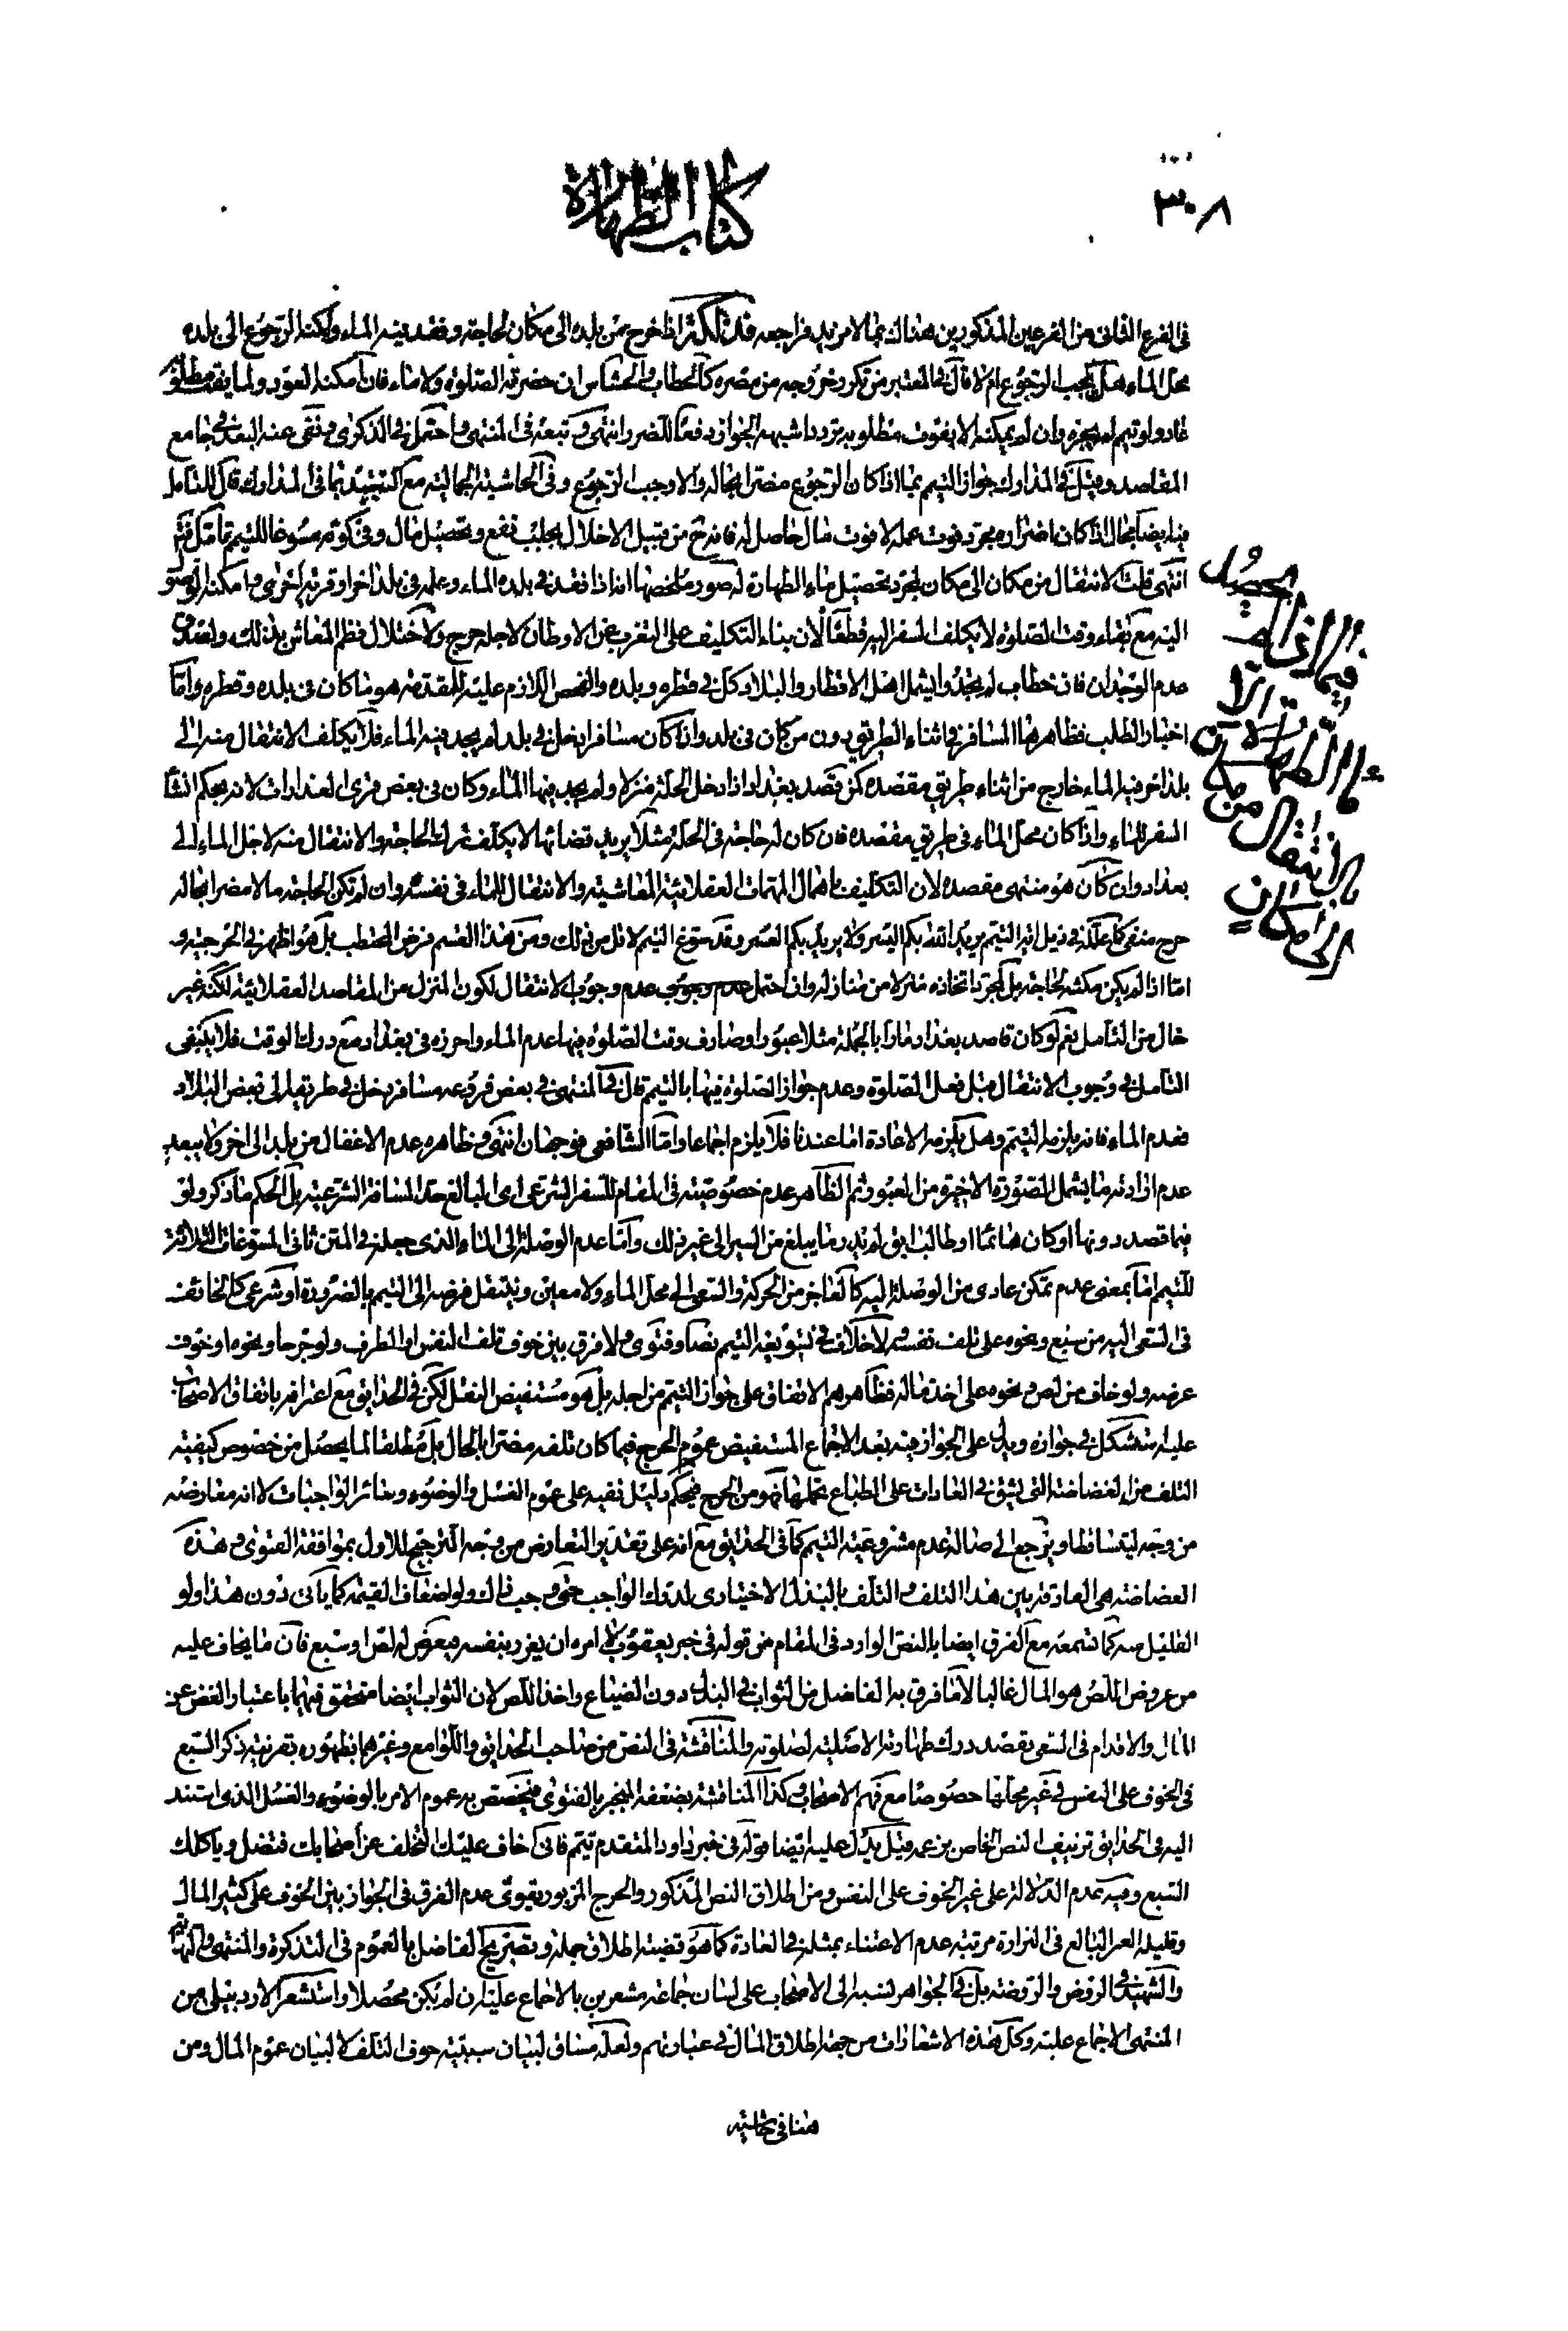 ٣٠٨
كتاب الطهارة
في الفرع الثاني من الفرعين المذكورين هناك بما لا مزيد فراجعه اذا خرج من بلده الى مكان لحاجة وفقد فيه الماء وامكنه الرجوع الى بلده
محل الماء هل يجب الرجوع ام لا قال في المعتبر من تكرر خروجه من مصره كالحطاب والحشاش ان حضرته الصلوة ولا ماء فان امكنه العود ولما يفت مطلوبه
عاد ولو تيمم لم يجزه وان لم يمكنه الا بفوت مطلوبه تردد اشبهه الجواز دفعا للضرر انتهى وتبعه في المنتهى واحتمل في الذكرى ونفى عنه البعد في جامع
المقاصد وقيل في المدارك جواز التيمم بما اذا كان الرجوع مضرا بحاله والا وجب الرجوع وفي الحاشية الجمالية مع تقييد ما في المدارك قال للتامل
فيه ايضا مجال اذا كان اضراره بمجرد فوت عمله لا فوت مال حاصل له فانه من قبيل الاخلال بجلب نفع وتحصيل مال وفي كونه مسوغا للتيمم تامل
انتهى قلت الانتقال من مكان الى مكان لمجرد تحصيل ماء الطهارة له صور ملخصها انه اذا فقد في بلده الماء وعلمه في بلد اخر او قرية اخرى وامكنه الوصول
اليه مع بقاء وقت الصلوة لا يكلف السفر اليه قطعا لان بناء التكليف على التغرب عن الاوطان لاجله حرج ولاختلال نظم المعاش بذلك ولصدق
عدم الوجدان فان خطاب لم تجدوا يشمل اهل الاقطار والبلاد كل في قطره وبلده والفحص اللازم عليه للمقدمة هو ما كان في بلده وقطره واما
اخبار الطلب فظاهرها المسافر في اثناء الطريق دون من كان في بلده واذا كان مسافرا دخل في بلد لم يجد فيه الماء فلا يكلف الانتقال منه الى
بلد اخر فيه الماء خارج من اثناء طريق مقصده كمن قصد بغداد اذا دخل الحلة منزلا ولم يجد فيها الماء وكان في بعض قرى لانه بحكم انشاء
السفر للماء واذا كان محل الماء في طريق مقصده فان كان له حاجة في الحلة مثلا يريد قضائها لا يكلف ترك الحاجة والانتقال منه لاجل الماء الى
بغداد وان كان هو منتهى مقصده لان التكليف باهمال المهمات العقلائية المعاشية والانتقال للماء في نفسه وان لم تكن الحاجة مالا مضرا بحاله
حرج منفي كما علله في ذيل اية التيمم يريد الله بكم اليسر ولا يريد بكم العسر وقد سوغ التيمم لاقل من ذلك ومن هذا القسم فرض المحتطب بل هو اظهر في الحرجية و
اما اذا لم يكن مكثه لحاجة بل لمجرد اتخاذه منزلا من منازله وان احتمل عدم وجوب عدم وجوب الانتقال لكون المنزل من المقاصد العقلائية لكنه غير
خال من التامل نعم لو كان قاصد بغداد مارا بالحلة مثلا عبورا وصادف وقت الصلوة فيها عدم الماء واحرزه في بغداد مع درك الوقت فلا ينبغي
التامل في وجوب الانتقال قبل فعل الصلوة وعدم جواز الصلوة فيها بالتيمم قال في المنتهى في بعض فروعه مسافر دخل في طريقه الى بعض البلاد
فعدم الماء فانه يلزمه التيمم وهل يلزمه الاعادة اما عندنا فلا يلزم اجماعا واما الشافعي فوجهان انتهى وظاهره عدم الانتقال من بلد الى اخر ولا يبعد
عدم ارادته ما يشمل الصورة الاخيرة من العبور ثم الظاهر عدم خصوصية في المقام للسفر الشرعي اي البالغ حد المسافة الشرعية بل الحكم ما ذكر ولو
فيما قصد دونها او كان هائما او طالب ابق لم يدر ما يبلغ من السير الى غير ذلك واما عدم الوصلة الى الماء الذي جعله في المتن ثاني المسوغات الثلاثة
للتيمم اما بمعنى عدم تمكن عادي من الوصلة اليه كالعاجز من الحركة والسعي الى محل الماء ولا معين وينتقل فرضه الى التيمم بالضرورة او شرعي كالخائف
في السعي اليه من سبع ونحوه على تلف نفسه لا خلاف في تسويغه التيمم نصا وفتوى ولا فرق بين خوف تلف النفس او الطرف ولو جرحا ونحوه او خوف
عرضه ولو خاف من لص ونحوه على اخذ ماله فظاهرهم الاتفاق على جواز التيمم من اجله بل هو مستفيض النقل لكن في الحدائق مع اعترافه باتفاق الاصحاب
عليه استشكل في جوازه ويدل على الجواز فيه بعد الاجماع المستفيض عموم الحرج فيما كان تلفه مضرا بالحال بل مطلقا لما يحصل من خصوص كيفية
التلف من الغضاضة التي يشق في العادات على الطباع تحملها فهو من الحرج فيحكم دليل نفيه على عموم الغسل والوضوء وسائر الواجبات لا انه معارضه
من وجه ليتساقطا ويرجع الى اصالة عدم مشروعية التيمم كما في الحدائق مع انه على تقدير التعارض من وجه الترجيح للاول بموافقة الفتوى وهذه
الغضاضة هي الفارقة بين هذا التلف والتلف بالبذل الاختياري لدرك الواجب حتى وجب ذلك ولو اضعاف القيمة كما ياتي دون هذا ولو
القليل منه كما تسمعه مع الفرق ايضا بالنص الوارد في المقام من قوله في خبر يعقوب لا امره ان يغرر بنفسه فيعرض له لص او سبع فان ما يخاف عليه
من عروض اللص هو المال غالبا لا ما فرق به الفاضل من الثواب في البذل دون الضياع واخذ اللص لان الثواب ايضا متحقق فيهما باعتبار الغض عن
المال والاقدام في السعي بقصد درك طهارته الاصلية لصلوته والمناقشة في النص من صاحب الحدائق واللوامع وغيرهما بظهوره بقرينة ذكر السبع
في الخوف على النفس في غير محلها خصوصا مع فهم الاصحاب وكذا المناقشة بضعفه المنجبر بالفتوى فيخصص به عموم الامر بالوضوء والغسل الذي استند
اليه في الحدائق تزييف النص الخاص من عمه قيل يدل عليه ايضا قوله في خبر داود المتقدم تيمم فاني اخاف عليك التخلف عن اصحابك فتضل وياكلك
السبع وفيه عدم الدلالة على غير الخوف على النفس ومن اطلاق النص المذكور والحرج المزبور يقوى عدم الفرق في الجواز بين الخوف على كثير المال
وقليله الغير البالغ في النزارة مرتبة عدم الاعتناء بمثله في العادة كما هو قضية اطلاق جملة وتصريح الفاضل بالعموم في التذكرة والمنتهى والنهاية
والشهيد في الروض والروضة بل في الجواهر نسبه الى الاصحاب على لسان جماعة مشعرين بالاجماع عليه ان لم يكن محصلا واستشعر الاردبيلي من
المنتهى الاجماع عليه وكل هذه الاشعارات من جهة اطلاق المال في عباراتهم ولعله مساق لبيان سببية خوف التلف لا لبيان عموم المال ومن
فيما اذا لم يحصل
ماء الطهارة الا
بالانتقال من مكان
الى مكان